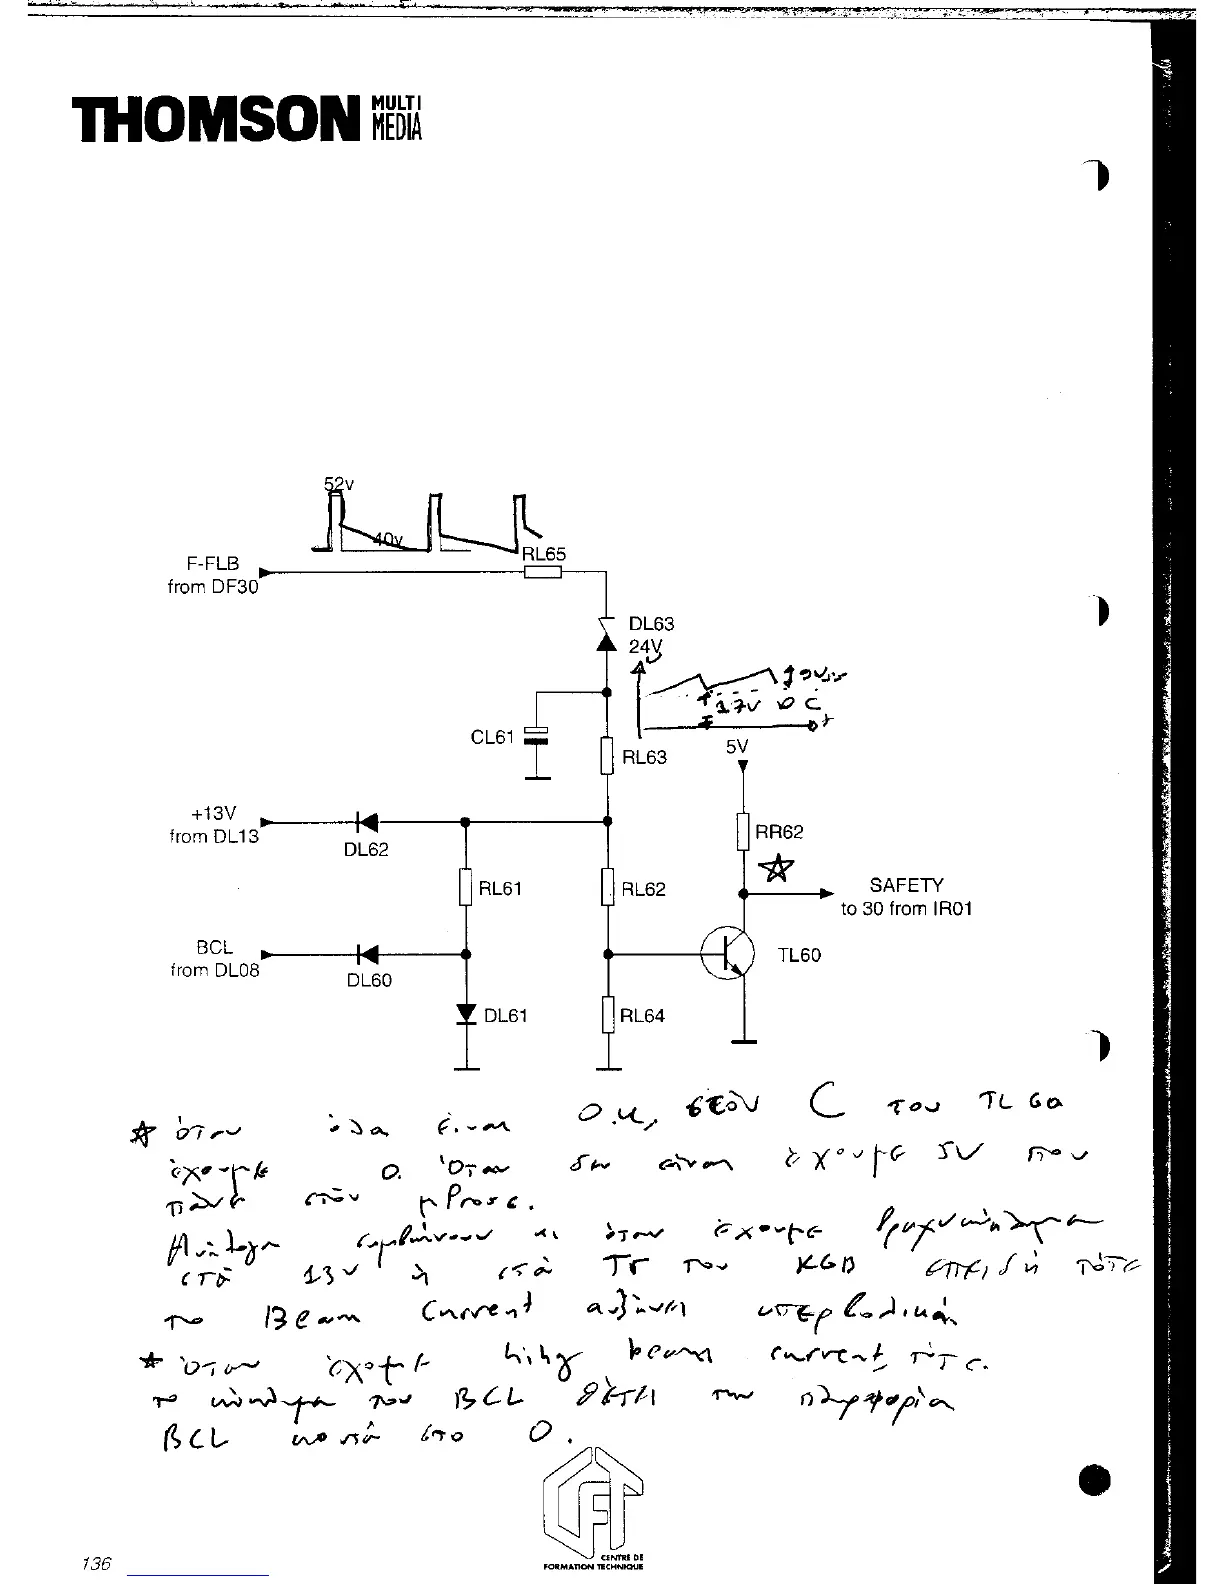 THOMSON MULTI
MEDIA
52v
40v
RL65
F-FLB
from DF30
DL63
24V
17V DC
t
CL61
RL63
5V
+13V
from DL13
DL62
RR62
RL61
RL62
SAFETY
to 30 from IR01
BCL
from DL08
DL60
TL60
DL61
RL64
* όταν όλα είναι Ο.Κ, στον C του TL 60
έχουμε 0. Όταν δεν είναι έχουμε 5V που
πάνε στον μProsc.
Ανάλογα συμβαίνουν κι όταν έχουμε βραχυκύκλωμα
στα 13V ή στα Tr του KGB επειδή τότε
το Beam Current αυξάνει υπερβολικά
* Όταν έχουμε high beam current τότε
το κύκλωμα του BCL θέτει την πληροφορία
BCL κοντά στο 0.
CENTRE DE
FORMATION TECHNIQUE
136